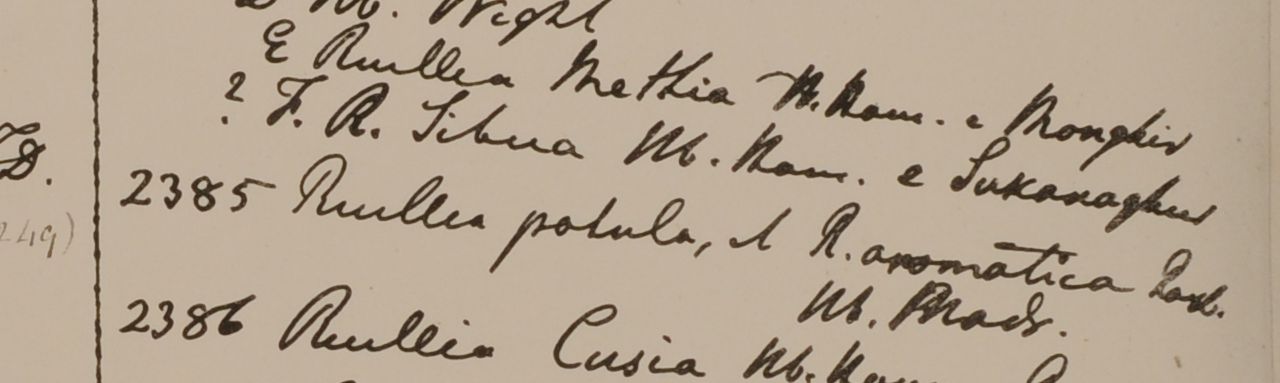 D Hb. Wight
E Ruellea Methia Hb. Ham. e Monghir
? F. R. Sibua Hb. Ham. e Sukanaghur
D.
2385 Ruellea patula, et R. aromatica Roxb.
249)
Hb. Mads.
2386 Ruellia Cusia Hb. Ham